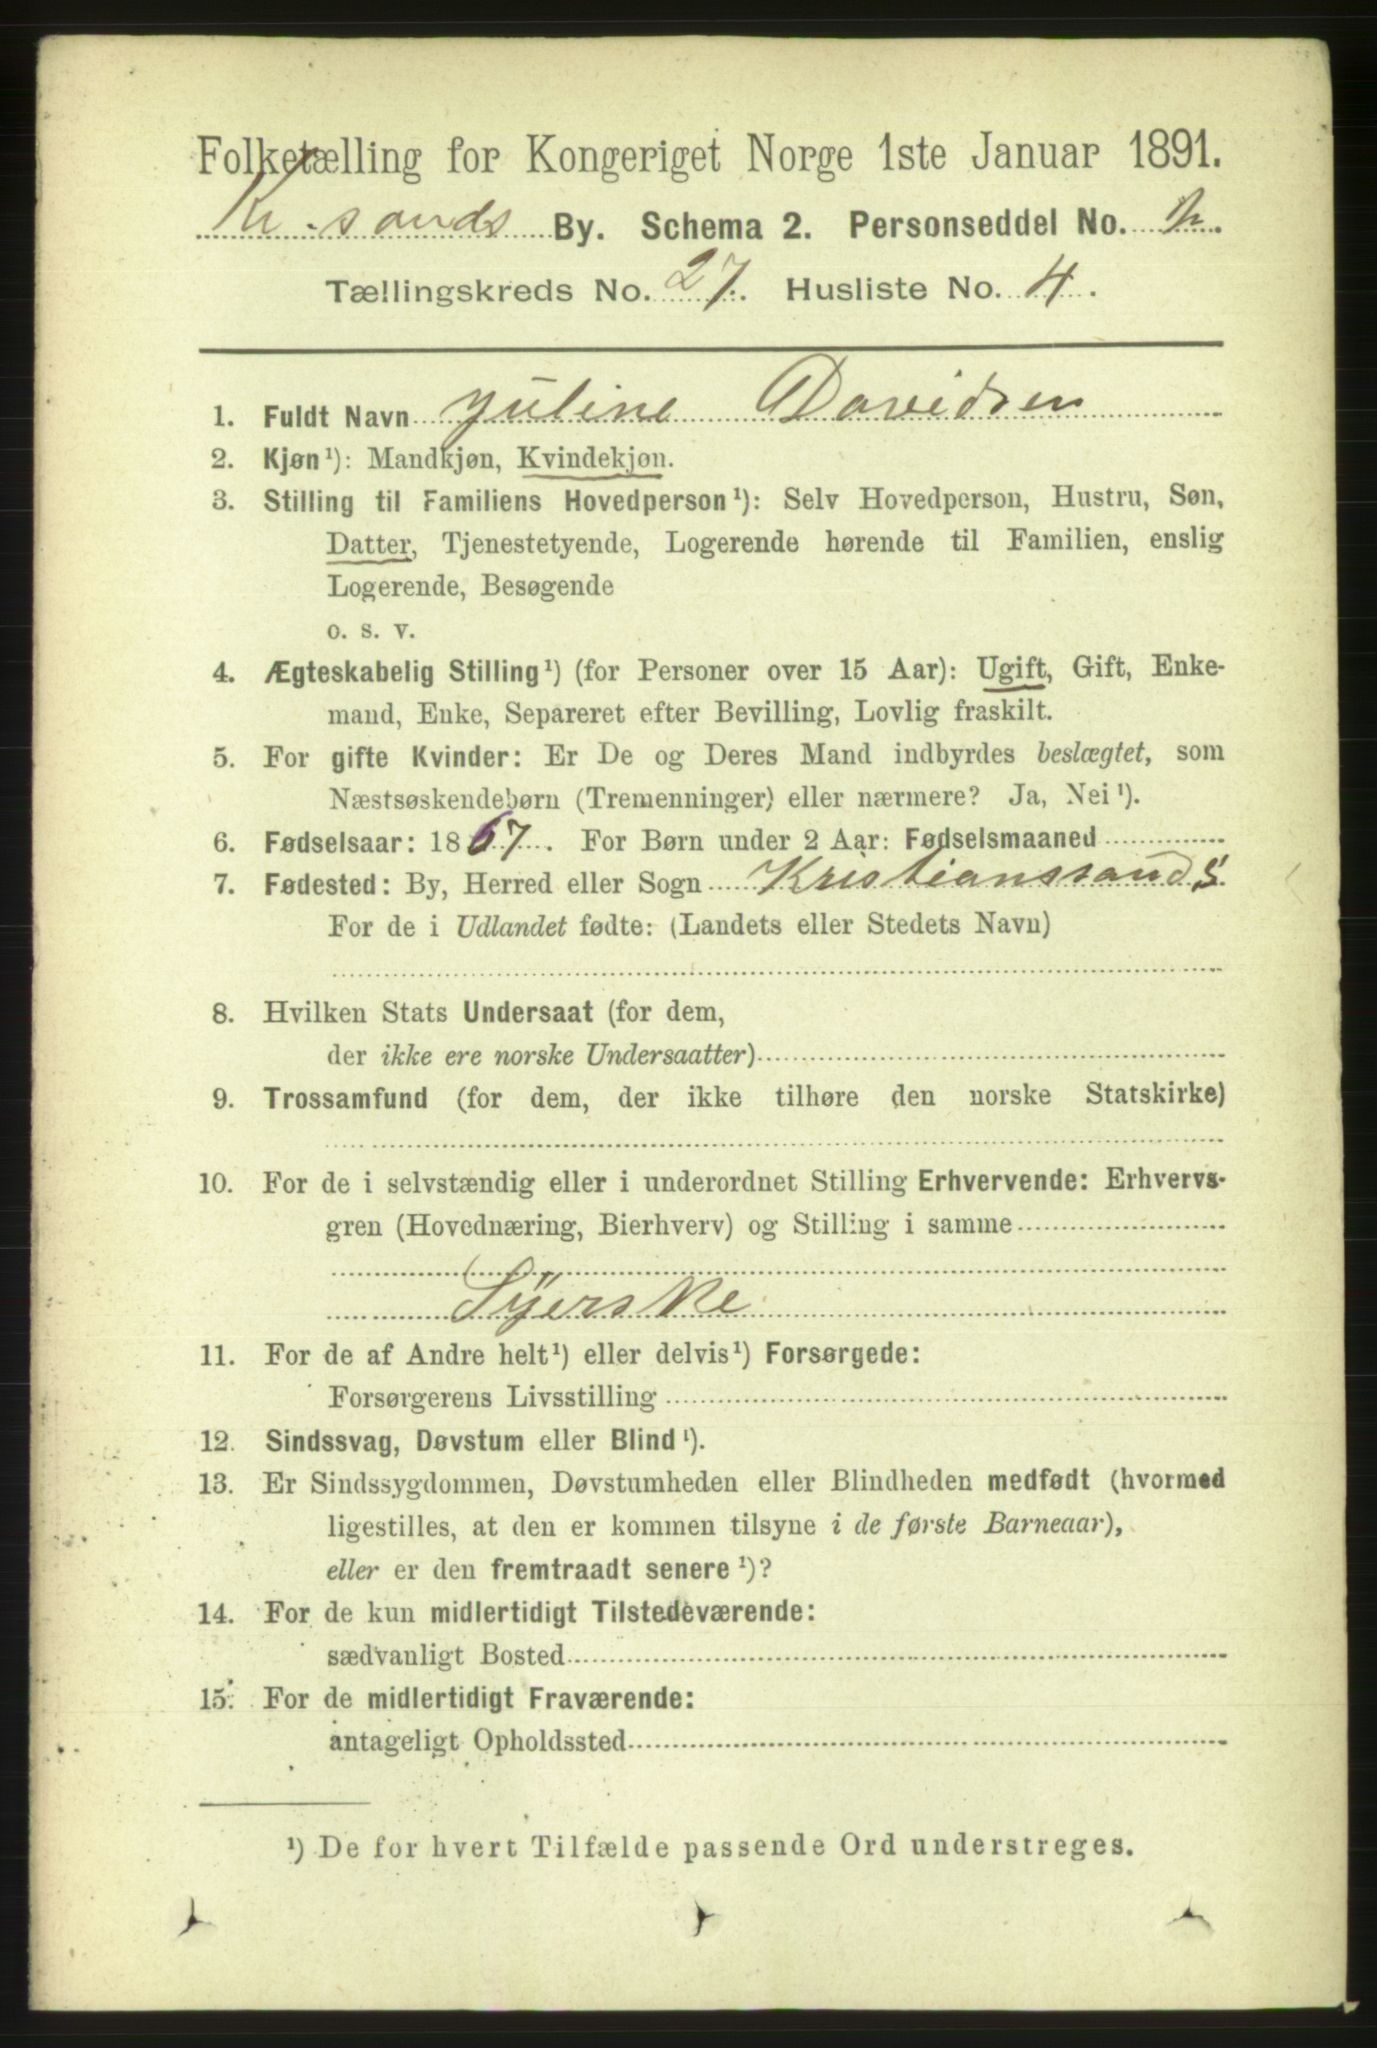 Folketælling for Kongeriget Norge 1ste Januar 1891.
Kr.sands By. Schema 2. Personseddel No.
Tællingskreds No. 27. Husliste No. 4.
1. Fuldt Navn Juline Davidsen
2. Kjøn¹): Mandkjøn, Kvindekjøn.
3. Stilling til Familiens Hovedperson¹): Selv Hovedperson, Hustru, Søn,
Datter, Tjenestetyende, Logerende hørende til Familien, enslig
Logerende, Besøgende
o. s. v.
4. Ægteskabelig Stilling¹) (for Personer over 15 Aar): Ugift, Gift, Enke-
mand, Enke, Separeret efter Bevilling, Lovlig fraskilt.
5. For gifte Kvinder: Er De og Deres Mand indbyrdes beslægtet, som
Næstsøskendebørn (Tremenninger) eller nærmere? Ja, Nei¹).
6. Fødselsaar: 1867. For Børn under 2 Aar: Fødselsmaaned
7. Fødested: By, Herred eller Sogn Kristianssands
For de i Udlandet fødte: (Landets eller Stedets Navn)
8. Hvilken Stats Undersaat (for dem,
der ikke ere norske Undersaatter)
9. Trossamfund (for dem, der ikke tilhøre den norske Statskirke)
10. For de i selvstændig eller i underordnet Stilling Erhvervende: Erhvervs-
gren (Hovednæring, Bierhverv) og Stilling i samme
Syerske
11. For de af Andre helt¹) eller delvis¹) Forsørgede:
Forsørgerens Livsstilling
12. Sindssvag, Døvstum eller Blind¹).
13. Er Sindssygdommen, Døvstumheden eller Blindheden medfødt (hvormed
ligestilles, at den er kommen tilsyne i de første Barneaar),
eller er den fremtraadt senere¹)?
14. For de kun midlertidigt Tilstedeværende:
sædvanligt Bosted
15. For de midlertidigt Fraværende:
antageligt Opholdssted
¹) De for hvert Tilfælde passende Ord understreges.